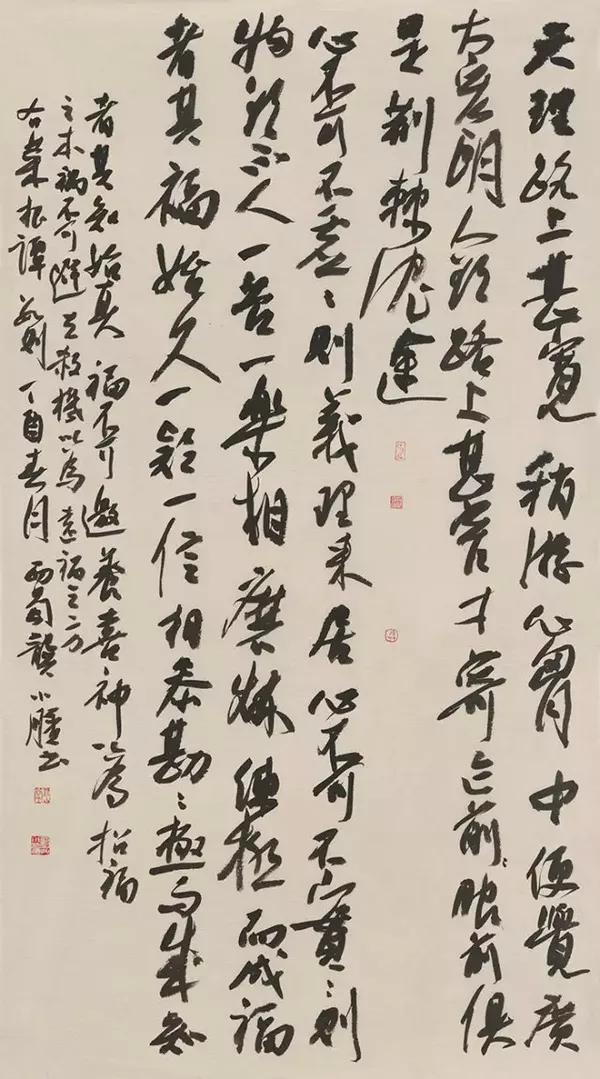 天理路上甚寬稍游心胸中便覺廣
大宏朗人欲路上甚窄才寄迹前眼前俱
是荆棘泥途
心不可不虛〻則義理來居心不可不實〻則
物欲不入一苦一樂相磨煉煉極而成福
者其福始久一疑一信相參勘〻極而成知
者其知始真福不可邀養喜神以為招福
之本禍不可避去殺機以為遠禍之方
右菜根譚數則丁酉春月西蜀龔小書